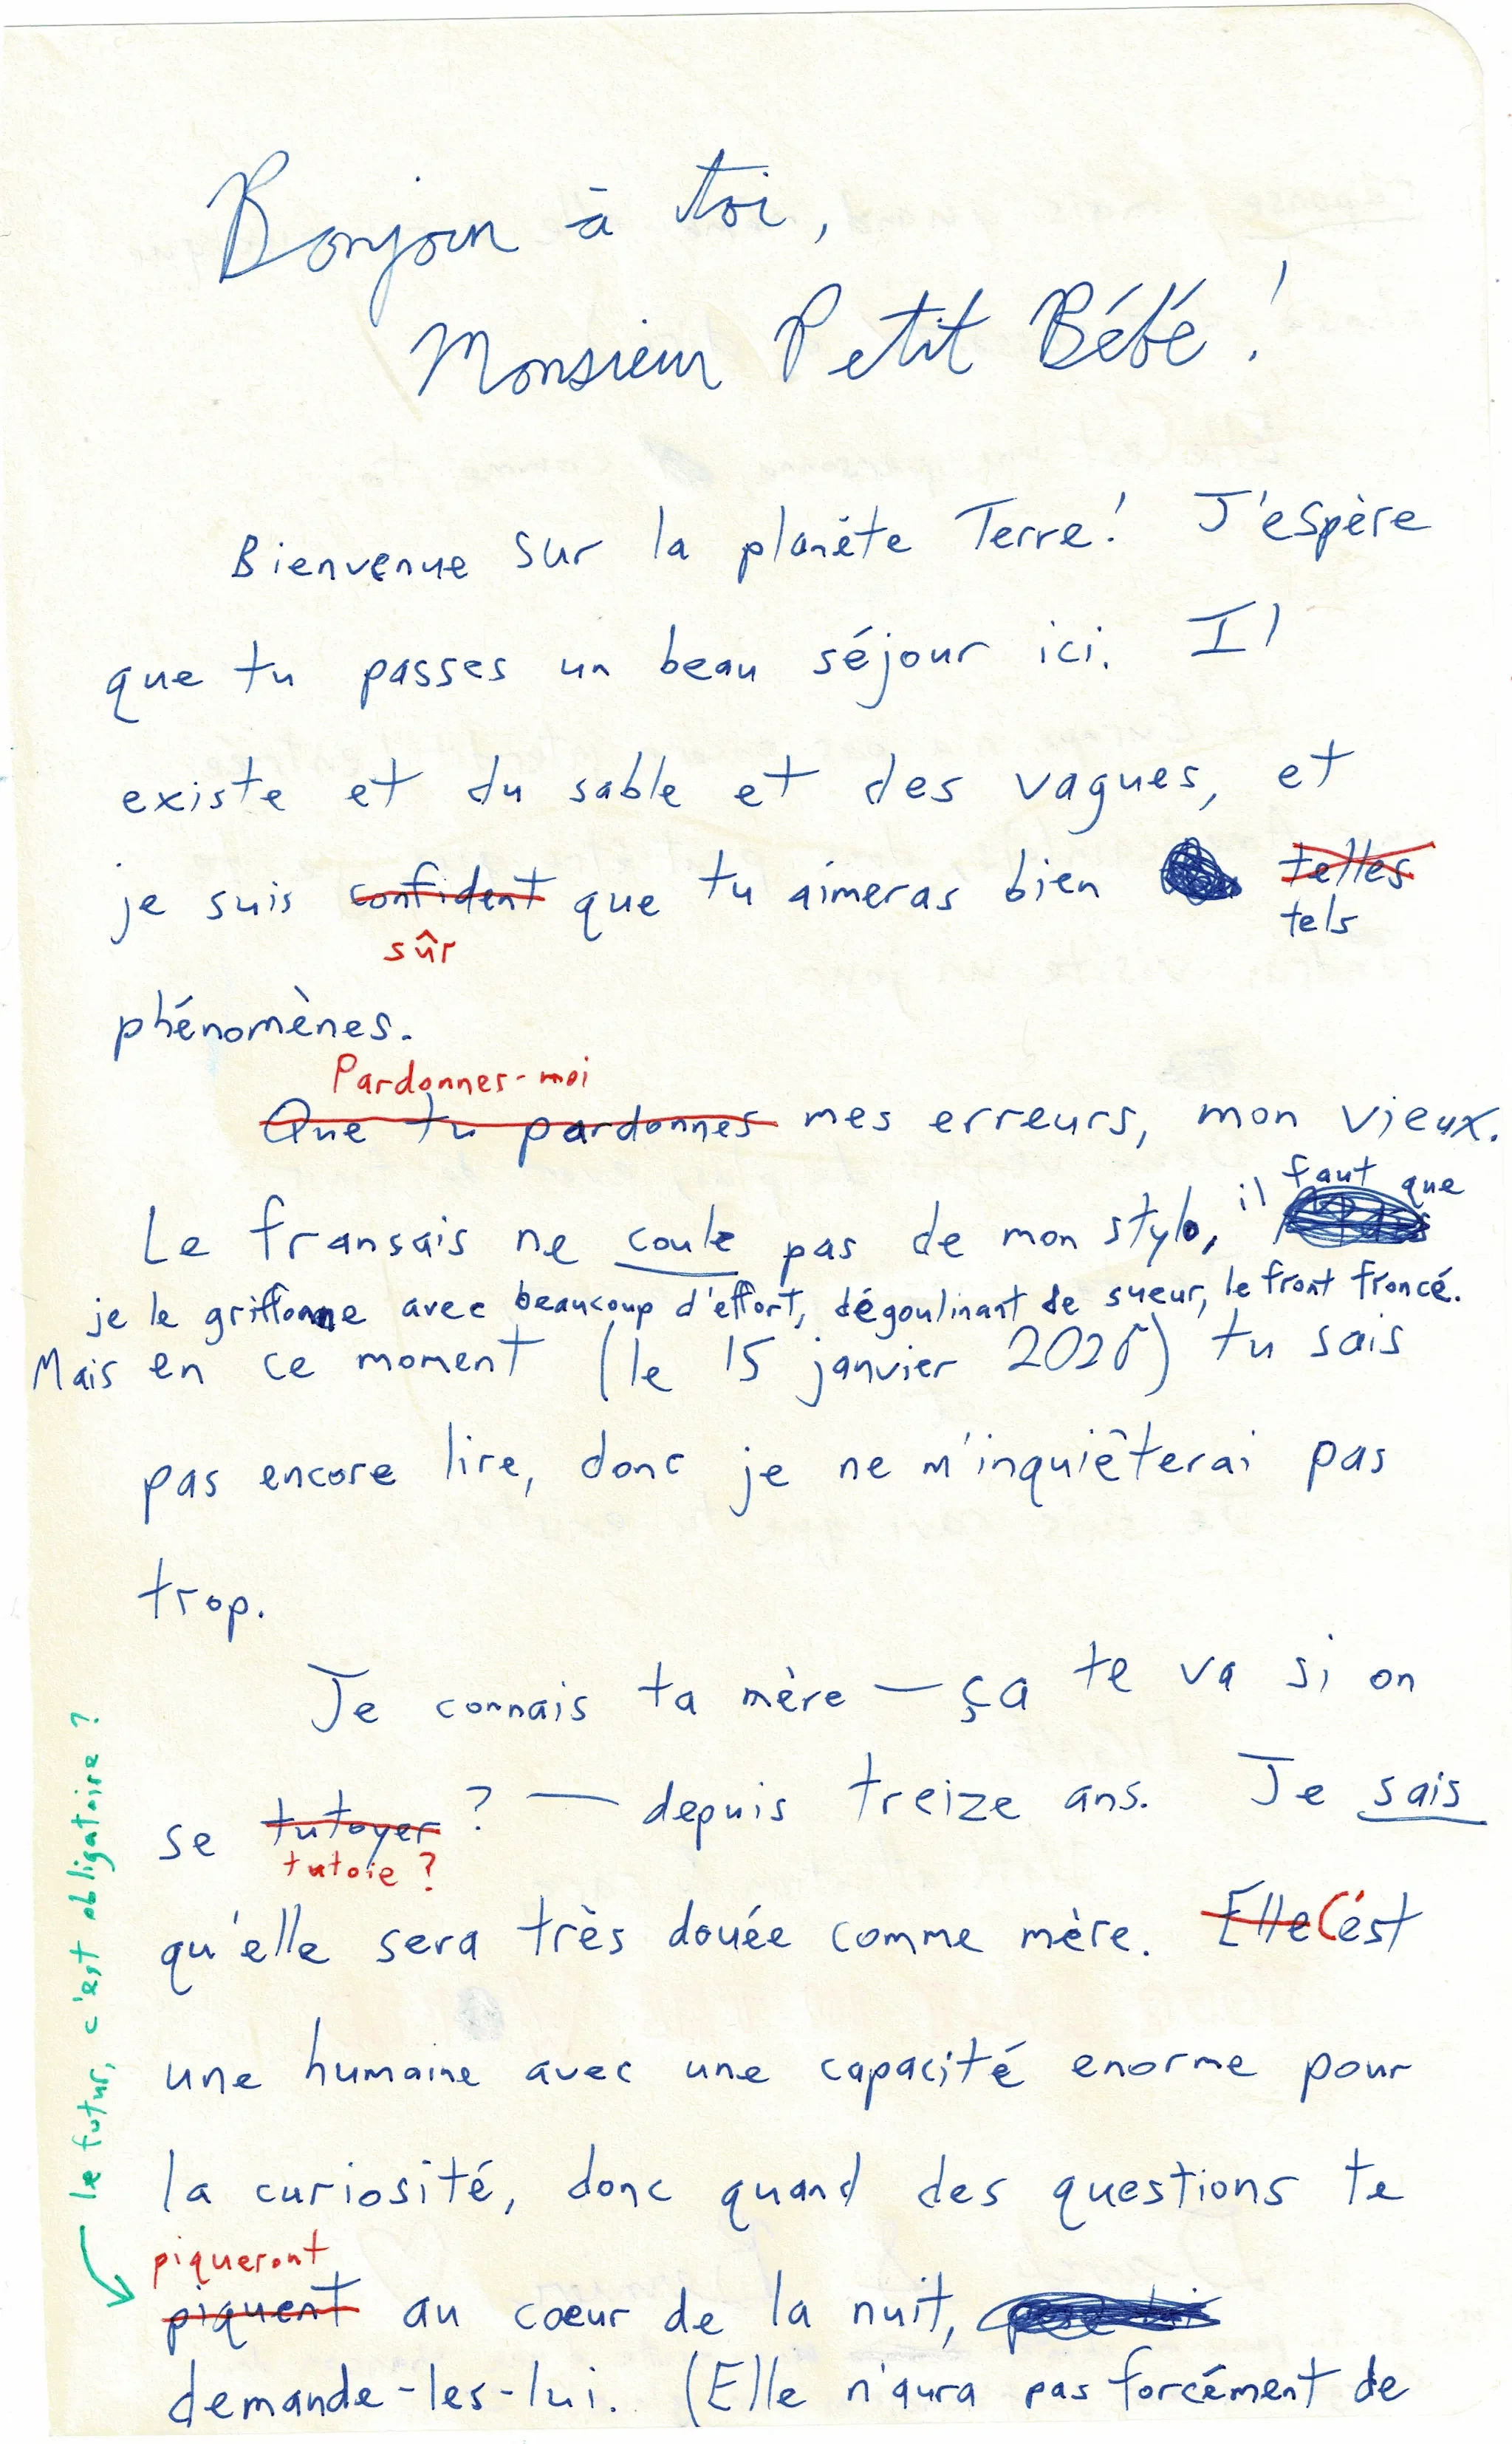 Bonjour à toi,
Monsieur Petit Bébé !
Bienvenue sur la planète Terre! J'espère
que tu passes un beau séjour ici. Il
existe et du sable et des vagues, et
je suis confident que tu aimeras bien telles
sûr
tels
phénomènes.
Pardonnes-moi
Que tu pardonnes mes erreurs, mon vieux.
Le fransais ne coule pas de mon stylo, il faut que
je le griffonne avec beaucoup d'effort, dégoulinant de sueur, le front froncé.
Mais en ce moment (le 15 janvier 2026) tu sais
pas encore lire, donc je ne m'inquièterai pas
trop.
Je connais ta mère — ça te va si on
se tutoyer ? — depuis treize ans. Je sais
tutoie ?
qu'elle sera très douée comme mère. Elle C'est
une humaine avec une capacité enorme pour
la curiosité, donc quand des questions te
piqueront
piquent au cœur de la nuit,
demande-les-lui. (Elle n'aura pas forcément de
le futur, c'est obligatoire ?